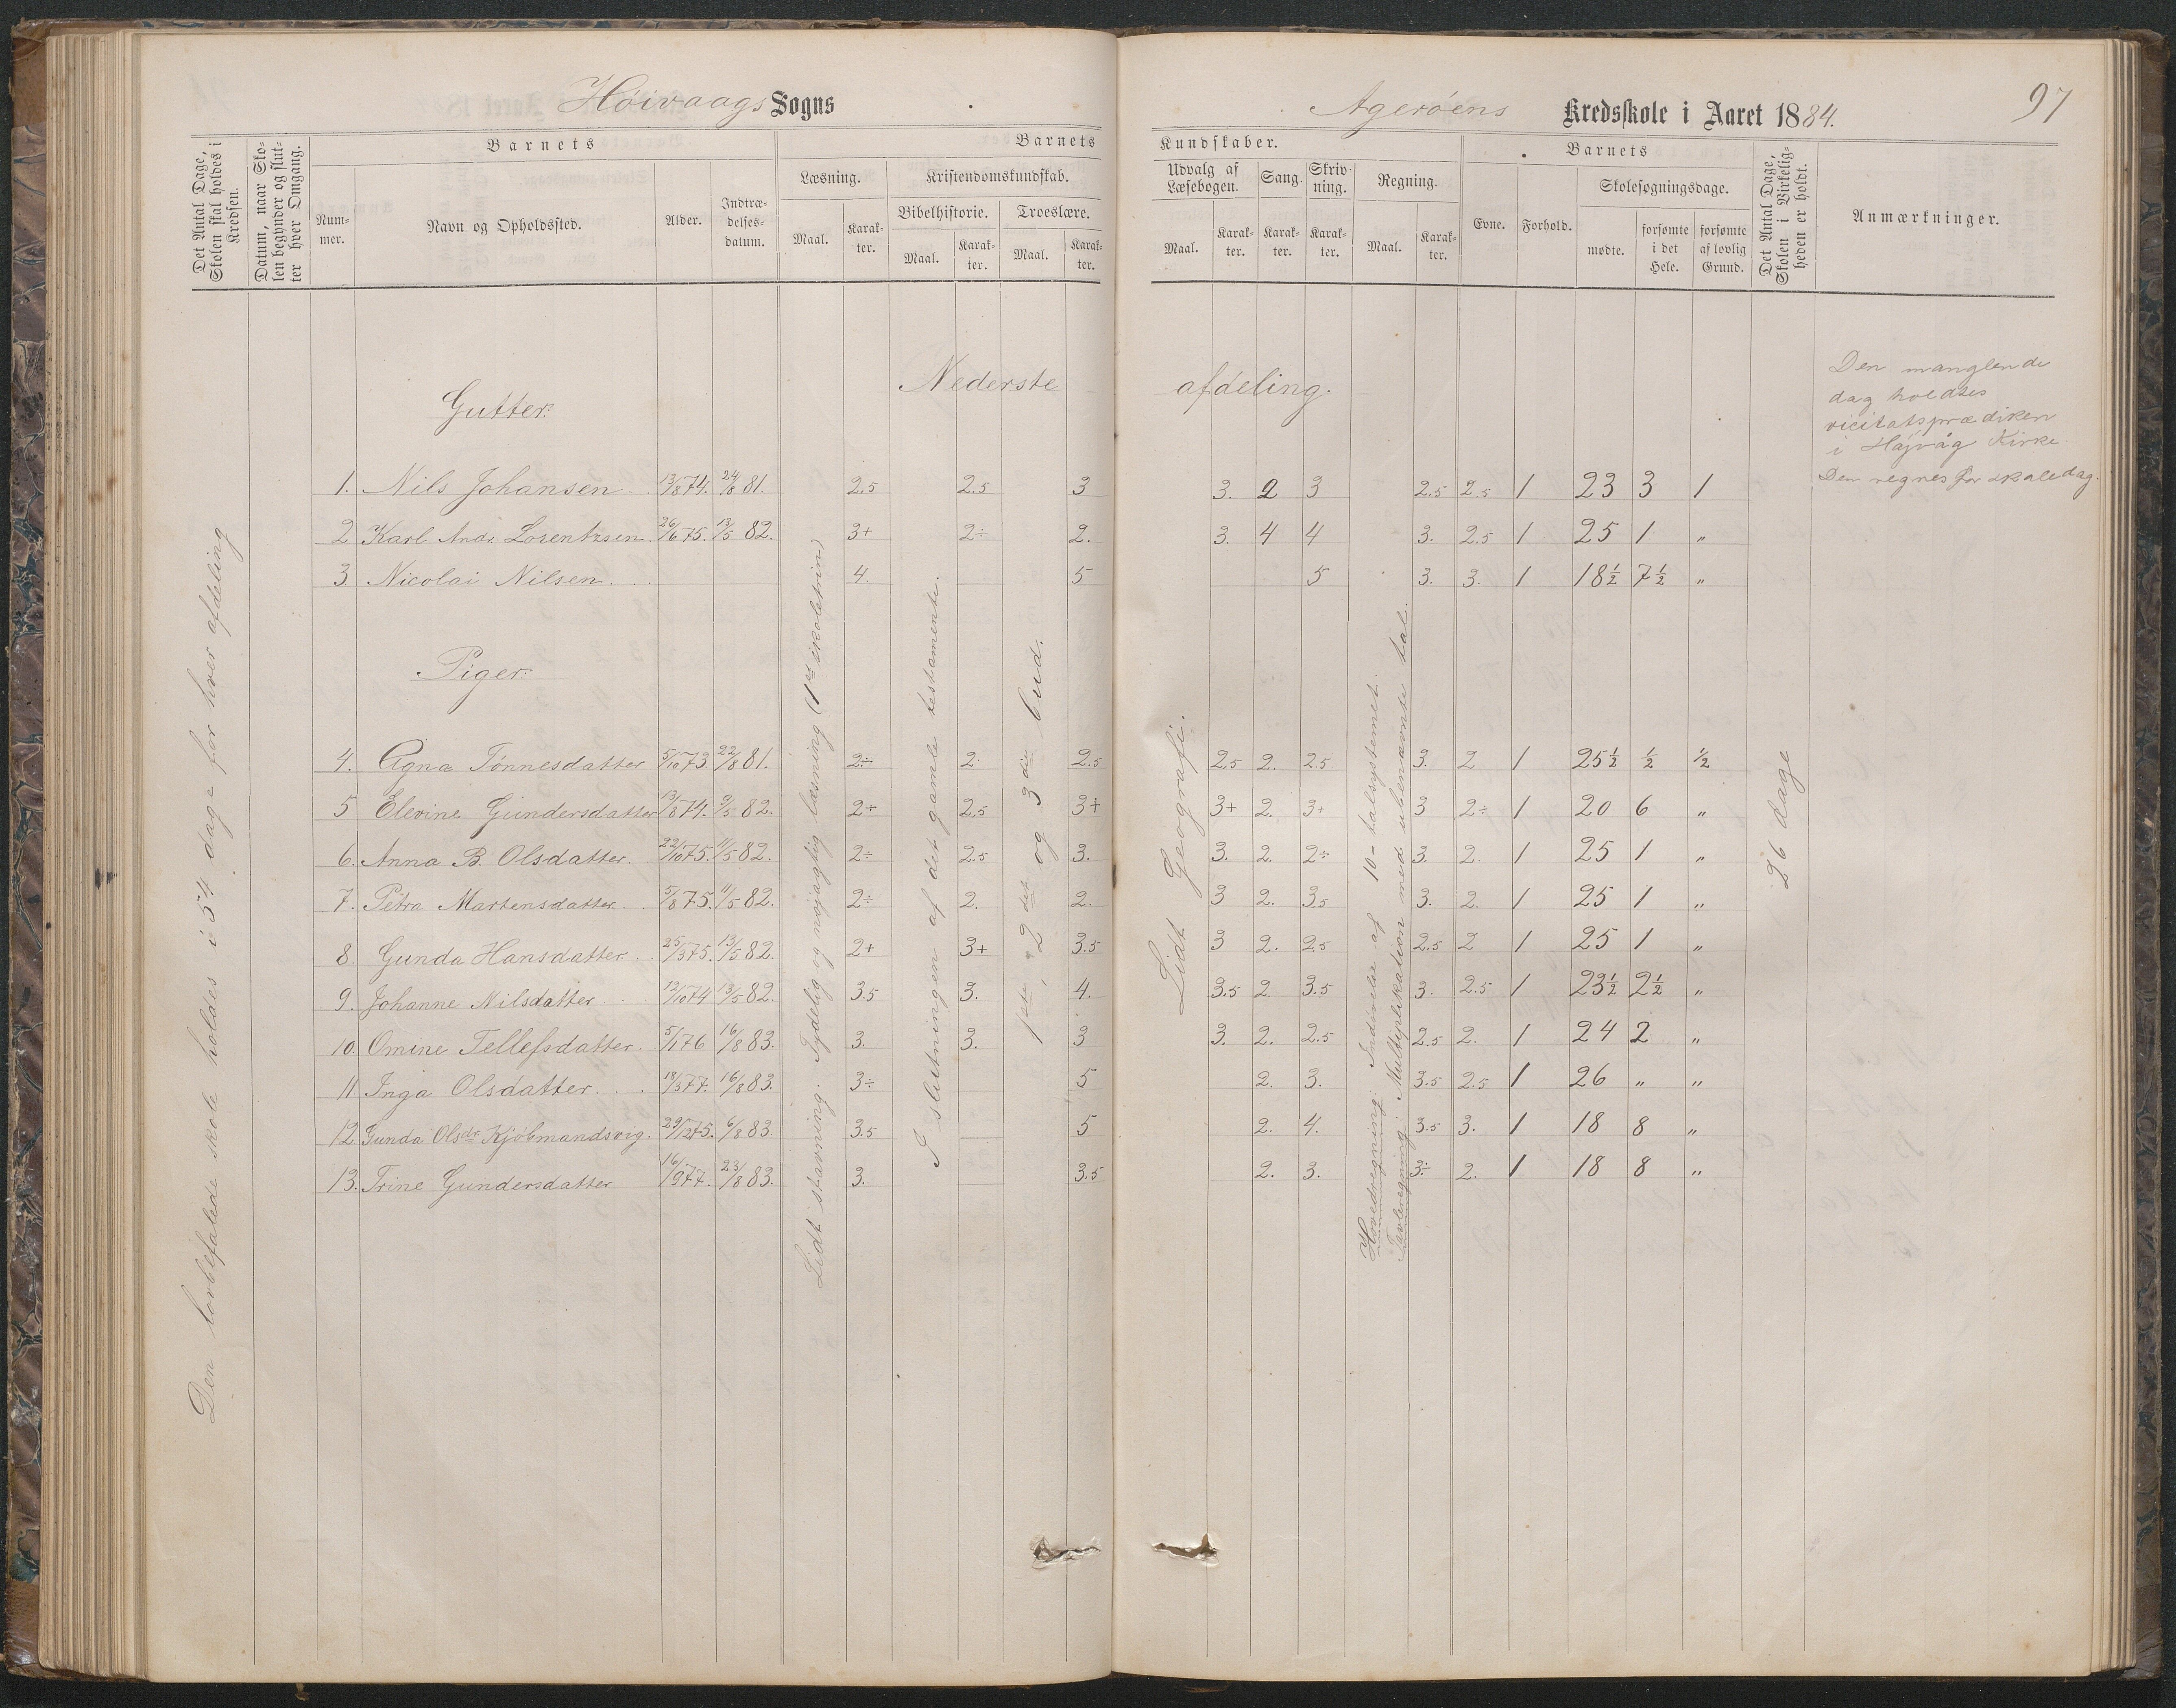 Høivaags Sogns
Agerøens Kredsskole i Aaret 1884.
97
Det Antal Dage, Skolen skal holdes i Kredsen.
Datum, naar Skolen begynder og slutter hver Omgang.
Barnets
Nummer.
Navn og Opholdssted.
Alder.
Indtrædelsesdatum.
Barnets Kundskaber.
Læsning.
Maal.
Karakter.
Kristendomskundskab.
Bibelhistorie.
Maal.
Karakter.
Troeslære.
Maal.
Karakter.
Udvalg af Læsebogen.
Maal.
Karakter.
Sang.
Karakter.
Skrivning.
Karakter.
Regning.
Maal.
Karakter.
Barnets
Evne.
Forhold.
Skolesøgningsdage.
mødte.
forsømte i det Hele.
forsømte af lovlig Grund.
Det Antal Dage, Skolen i Virkeligheden er holdt.
Anmærkninger.
Nederste afdeling.
Den manglende
dag holdtes
vicitatsprædiken
i Højvåg Kirke.
Den regnes for skoledag.
Gutter:
1. Nils Johansen 13/8 74. 24/8 81. 2.5 2.5 3 3. 2 3 2.5 2.5 1 23 3 1
2 Karl Andr. Lorentzsen 26/6 75. 13/5 82. 3+ 2÷ 2. 3. 4 4 3. 2.5 1 25 1 "
3. Nicolai Nilsen 4. 5 5 3. 3. 1 18½ 7½ "
Piger:
4. Agna Tønnesdatter 5/10 73. 22/8 81. 2÷ 2. 2.5 2,5 2. 2.5 3. 2 1 25½ ½ ½
5 Elevine Gundersdatter 13/8 74. 9/5 82. 2+ 2.5 3+ 3+ 2. 3+ 3 2÷ 1 20 6 "
6. Anna B. Olsdatter 22/10 75. 11/5 82. 2÷ 2.5 3. 3. 2. 2÷ 3. 2. 1 25 1 "
7. Petra Martensdatter 5/8 75. 11/5 82. 2÷ 2. 2. 3 2. 3.5 3. 2. 1 25 1 "
8. Gunda Hansdatter 25/3 75. 13/5 82. 2+ 3+ 3.5 3 2. 2.5 2.5 2 1 25 1 "
9. Johanne Nilsdatter 12/10 74 13/5 82. 3.5 3. 4. 3.5 2. 3.5 3. 2.5 1 23½ 2½ "
10. Omine Tellefsdatter. 5/1 76 16/8 83. 3. 3. 3 3. 2. 2.5 2.5 2. 1 24 2 "
11 Inga Olsdatter. 18/3 77. 16/8 83. 3÷ 5 2. 3. 3.5 2.5 1 26 " "
12 Gunda Olsdr Kjøbmandsvig. 29/12 75. 6/8 83. 3.5 5 2. 4. 3.5 3. 1 18 8 "
13. Trine Gundersdatter 16/9 77. 23/8 83. 3. 3.5 2. 3. 3÷ 2. 1 18 8 "
Den lovbefalede skole holdes i 54 dage for hver afdeling
Lidt stavning. Tydelig og nøjagtig læsning (1ste skoletrin)
I slutningen af det gamle testamente.
1ste, 2det og 3die bud.
Lidt Geografi.
Hovedregning: Indøvelse af 10-talsystemet.
Tavleregning: Multiplikation med ubenævnte tal.
26 dage